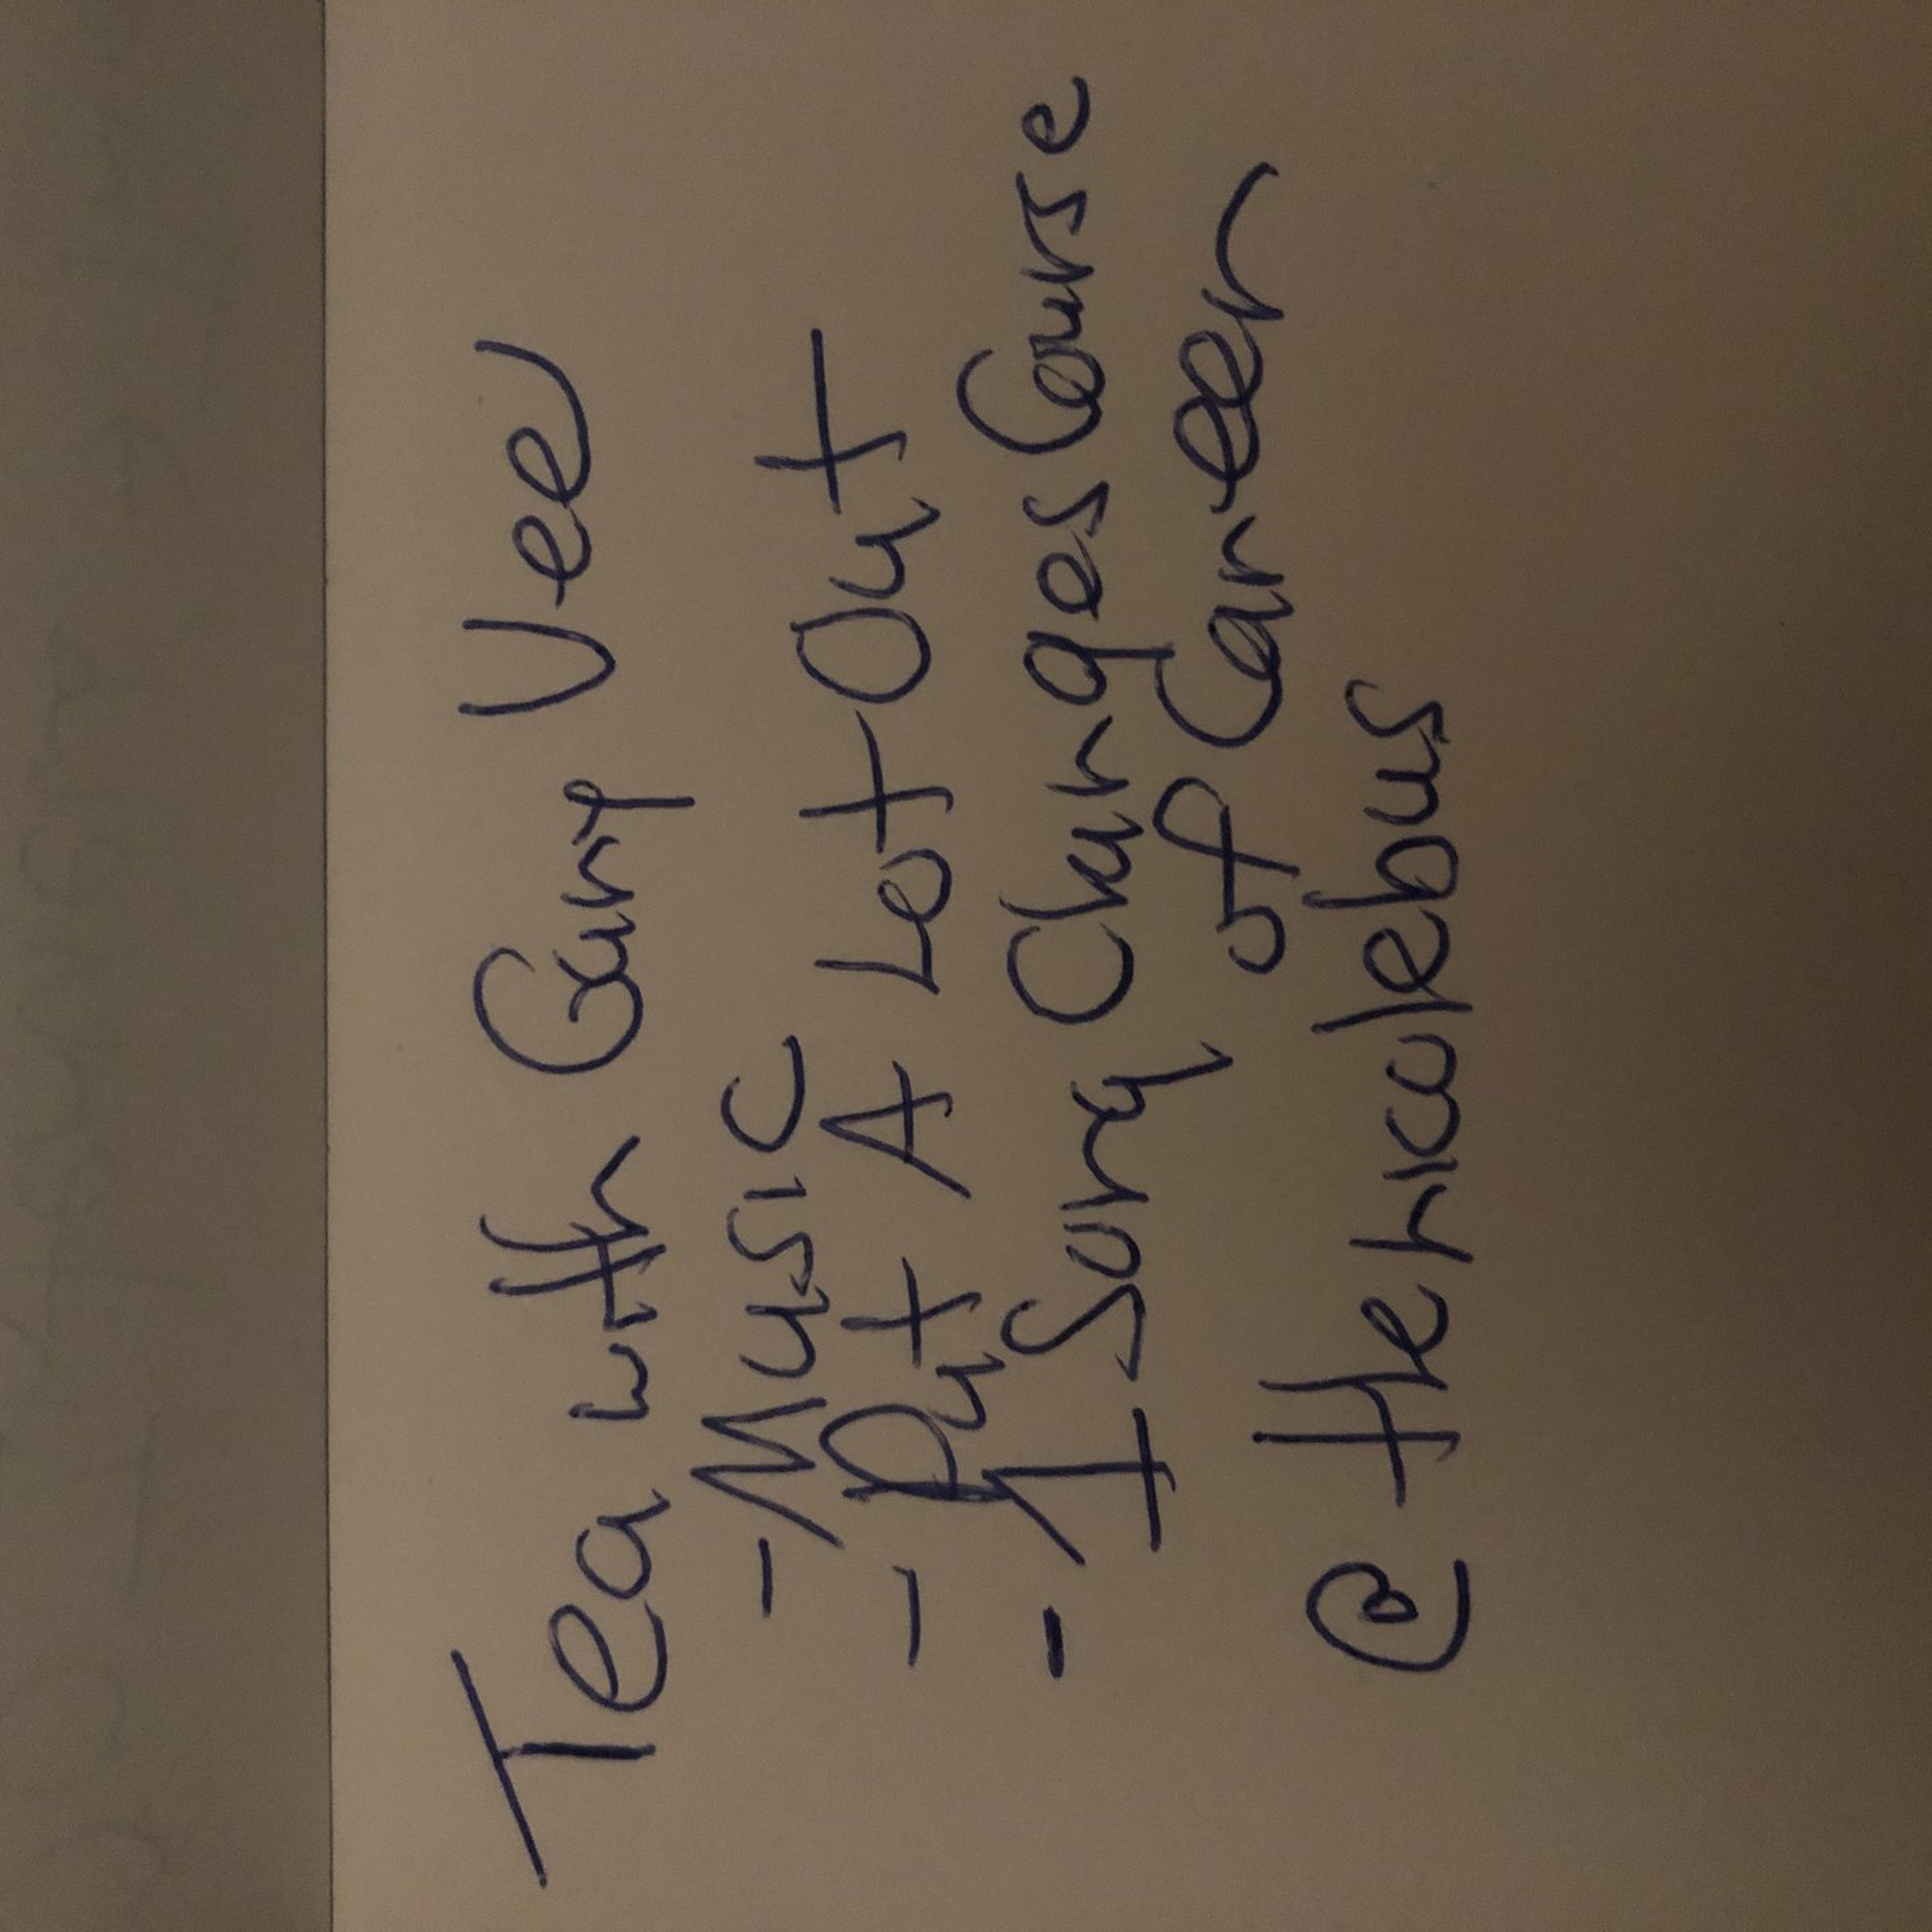 Tea with Gary Vee
- Music
- Put A Lot Out
- 1 Song Changes Course
of Career
@thenicolebus